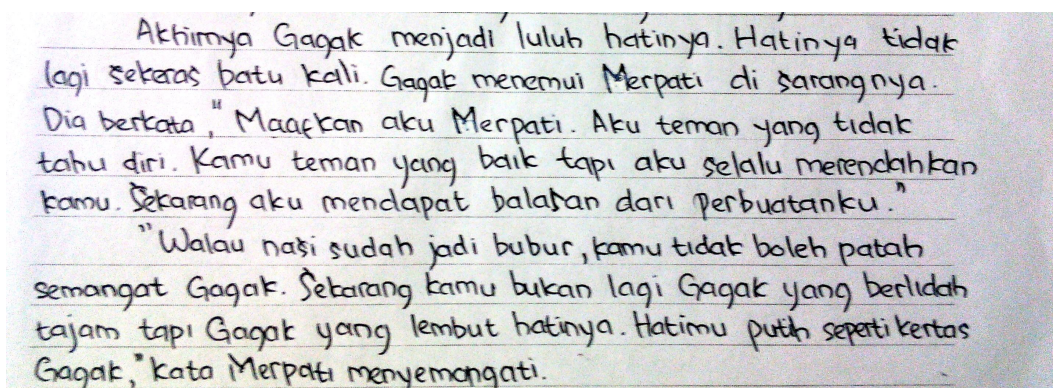 Akhirnya Gagak menjadi luluh hatinya. Hatinya tidak
lagi sekeras batu kali. Gagak menemui Merpati di sarangnya.
Dia berkata, "Maafkan aku Merpati. Aku teman yang tidak
tahu diri. Kamu teman yang baik tapi aku selalu merendahkan
kamu. Sekarang aku mendapat balasan dari perbuatanku."
"Walau nasi sudah jadi bubur, kamu tidak boleh patah
semangat Gagak. Sekarang kamu bukan lagi Gagak yang berlidah
tajam tapi Gagak yang lembut hatinya. Hatimu putih seperti kertas
Gagak," kata Merpati menyemangati.